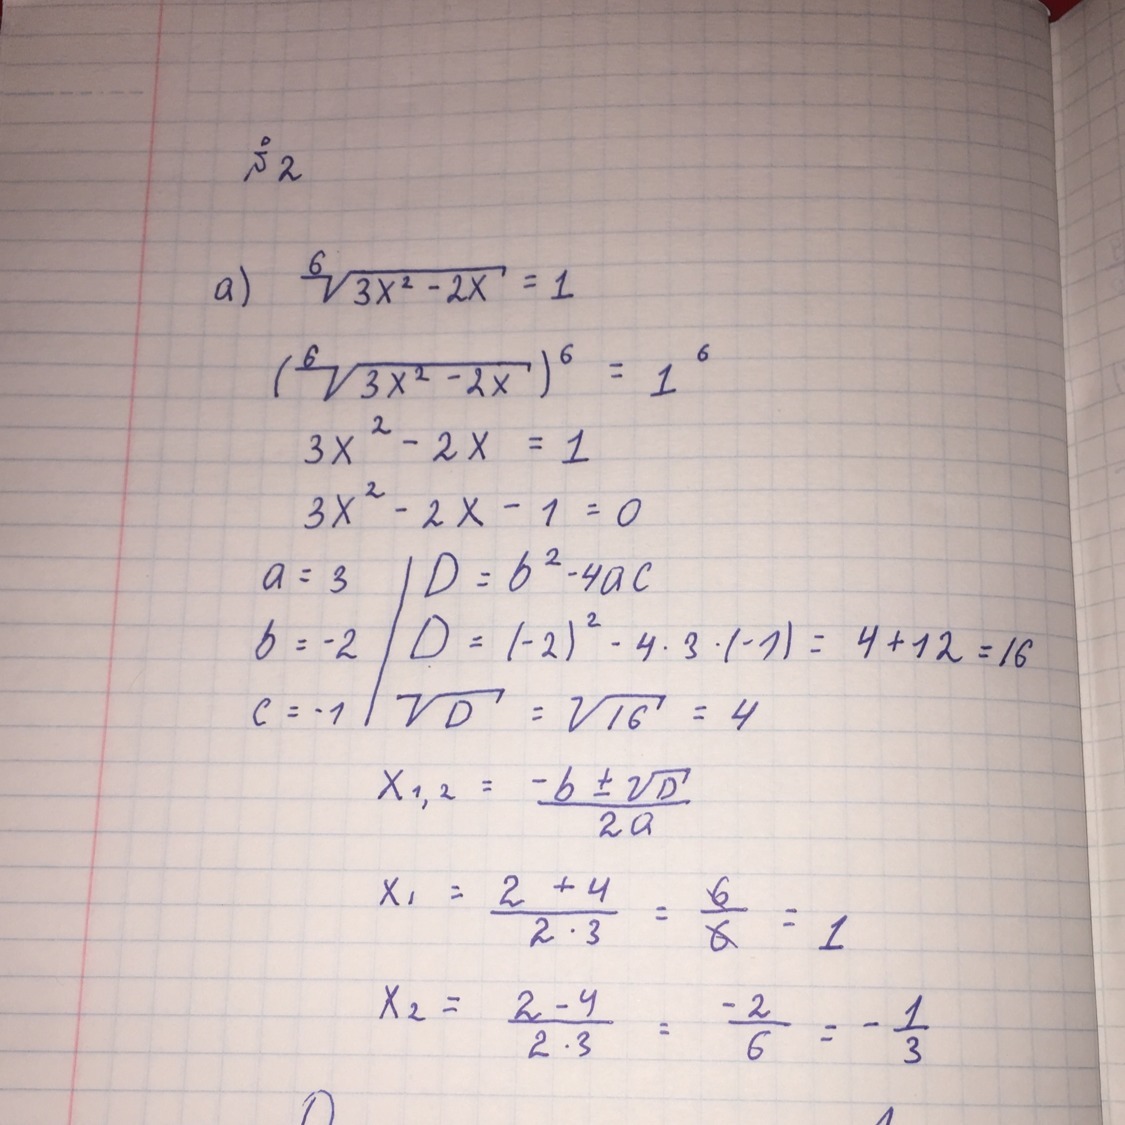 № 2
а) ⁶√(3x² - 2x) = 1
(⁶√(3x² - 2x))⁶ = 1⁶
3x² - 2x = 1
3x² - 2x - 1 = 0
a = 3 | D = b² - 4ac
b = -2 | D = (-2)² - 4 · 3 · (-1) = 4 + 12 = 16
c = -1 | √D = √16 = 4
x₁,₂ = (-b ± √D) / 2a
x₁ = (2 + 4) / (2 · 3) = 6/6 = 1
x₂ = (2 - 4) / (2 · 3) = -2/6 = -1/3